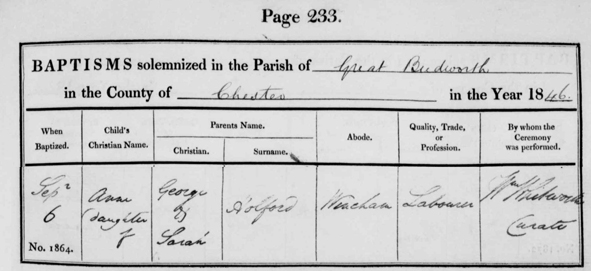 Page 233.
BAPTISMS solemnized in the Parish of Great Budworth
in the County of Chester in the Year 1846.
When Baptized.
Child's Christian Name.
Parents Name.
Christian.
Surname.
Abode.
Quality, Trade, or Profession.
By whom the Ceremony was performed.
Sepr
6
No. 1864.
Anne
daughter
of
George
&
Sarah
Holford
Wincham
Labourer
Wm Whitworth
Curate